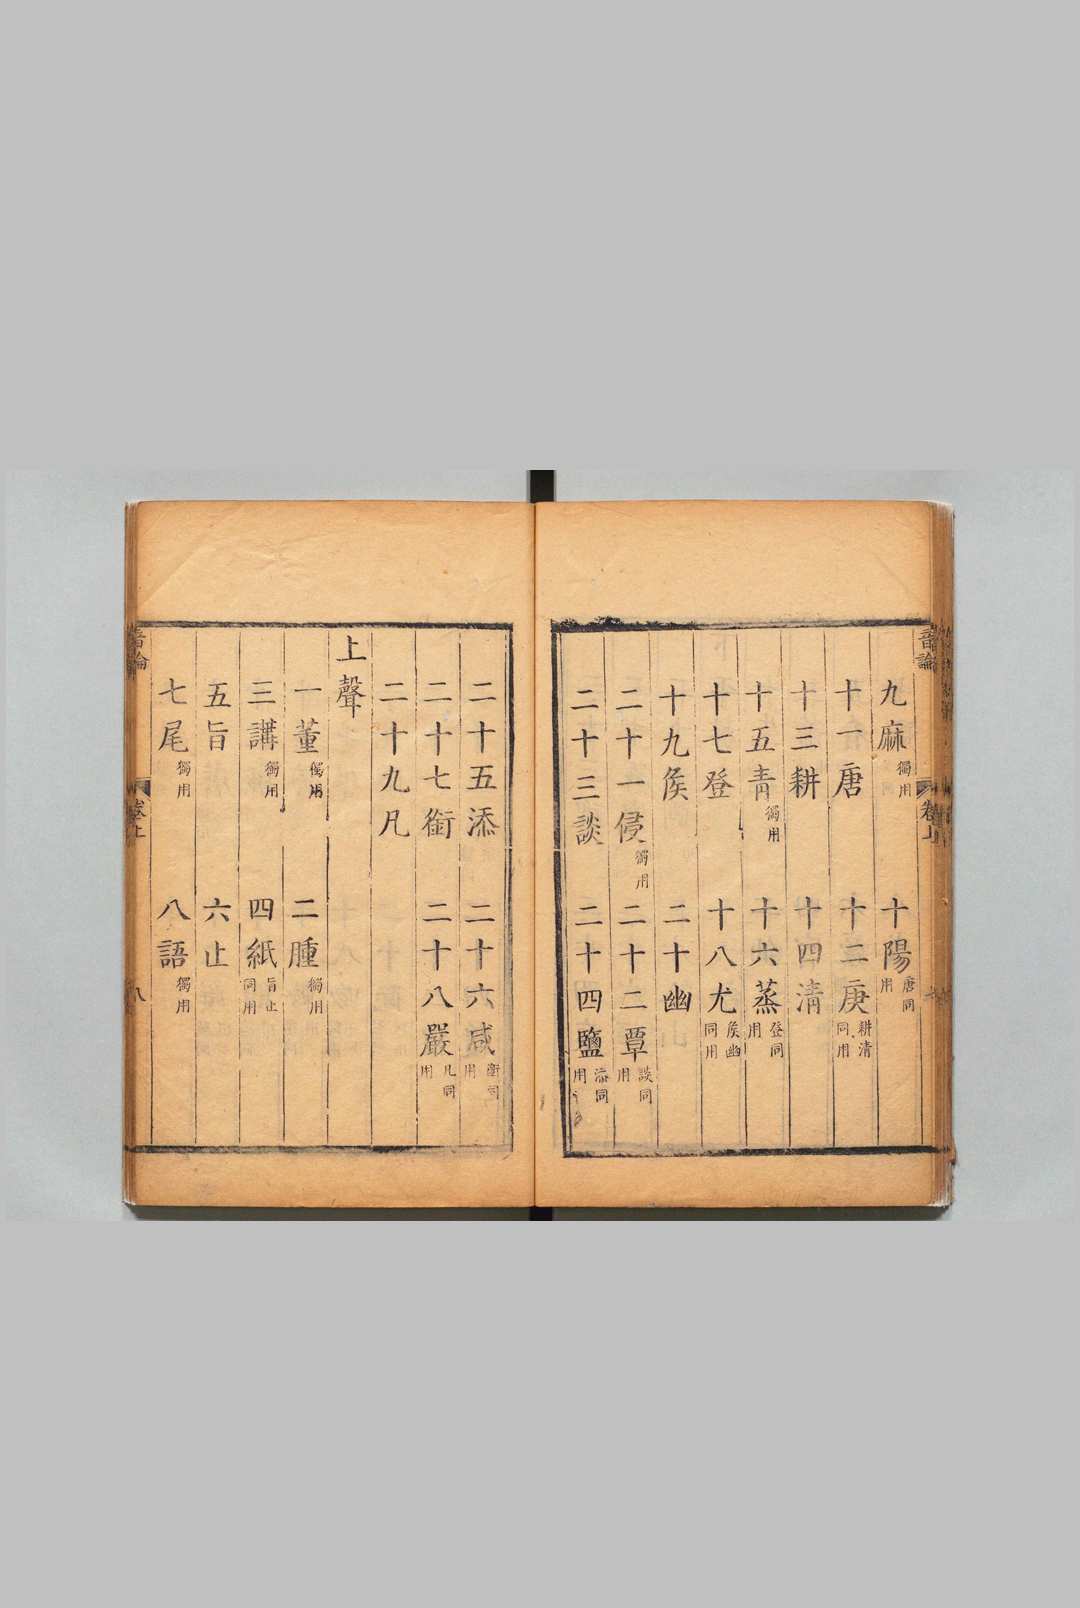 九麻獨用 十陽唐同用
十一唐 十二庚耕清同用
十三耕 十四清
十五青獨用 十六蒸登同用
十七登 十八尤侯幽同用
十九侯 二十幽
二十一侵獨用 二十二覃談同用
二十三談 二十四鹽添同用
二十五添 二十六咸銜同用
二十七銜 二十八嚴凡同用
二十九凡
上聲
一董獨用 二腫獨用
三講獨用 四紙旨止同用
五旨 六止
七尾獨用 八語獨用
音論 卷上 八